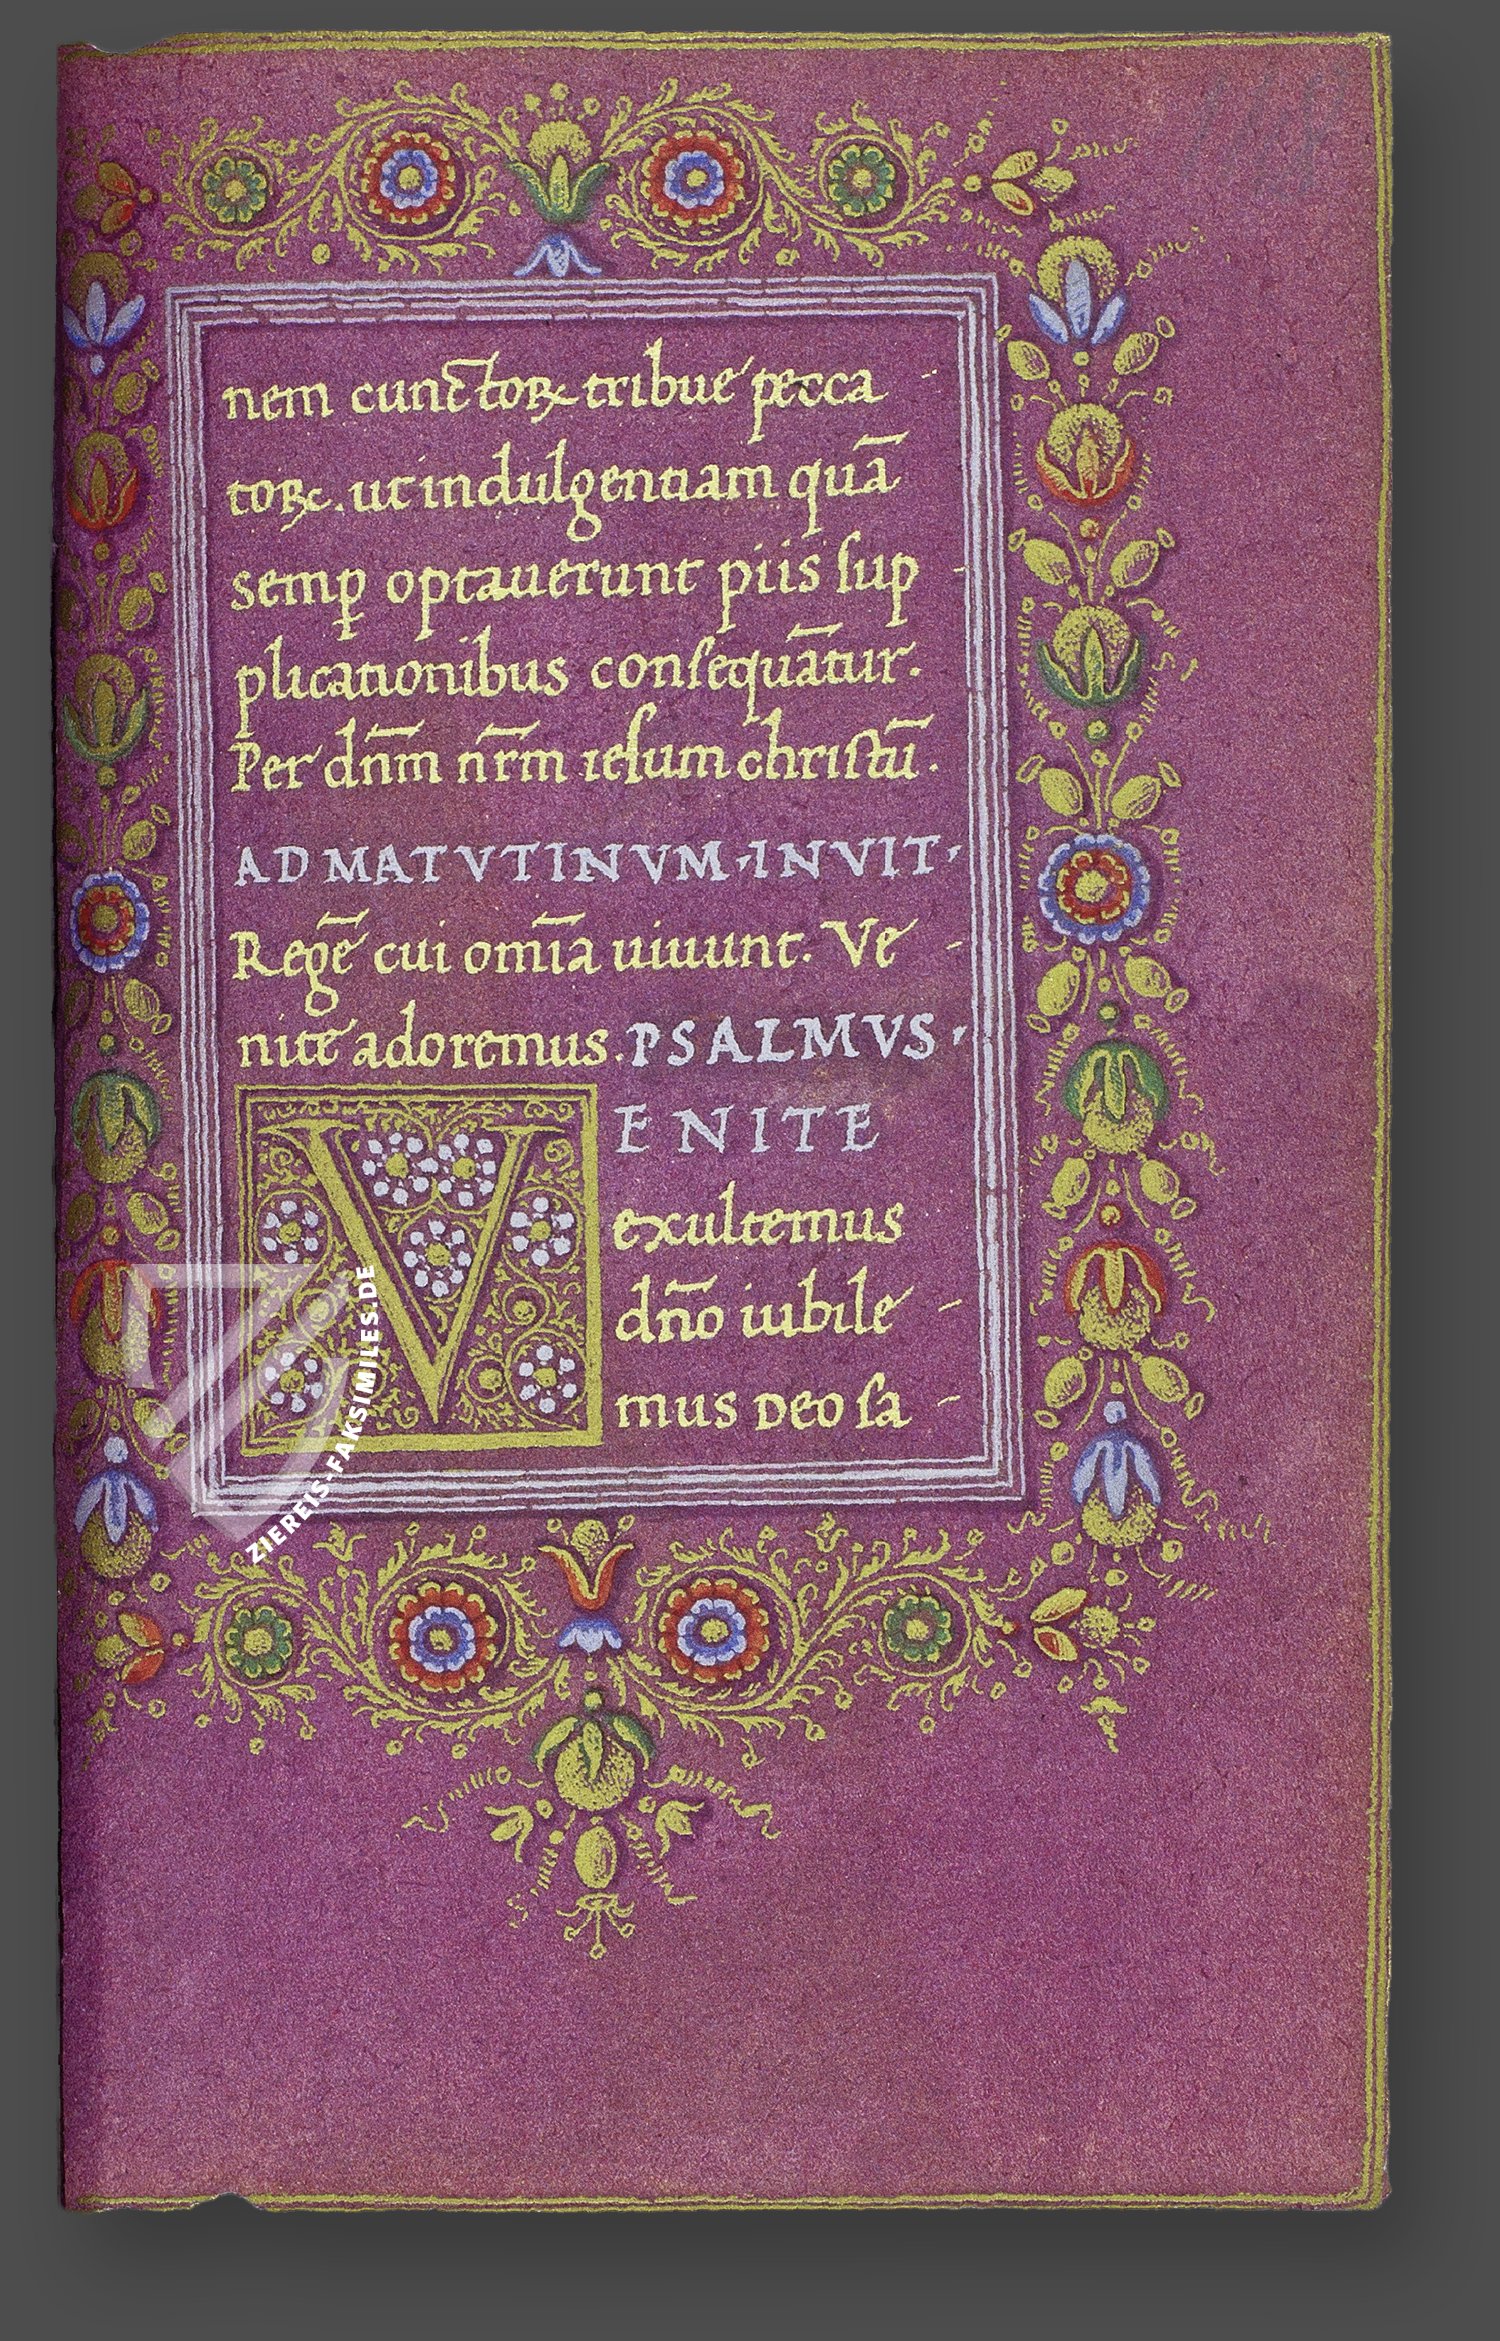 nem cunctoꝝ tribue pecca-
toꝝ. ut indulgentiam quā
semꝑ optauerunt piis ſup-
plicationibus conſequātur.
Per dn̄m nr̄m ieſum chriſtū.
AD MATVTINVM, INVIT,
Regē cui om̄ia uiuunt. Ve-
nite adoremus. PSALMVS,
VENITE
exultemus
dn̄o iubile-
mus Deo ſa-
ZIEREIS-FAKSIMILES.DE